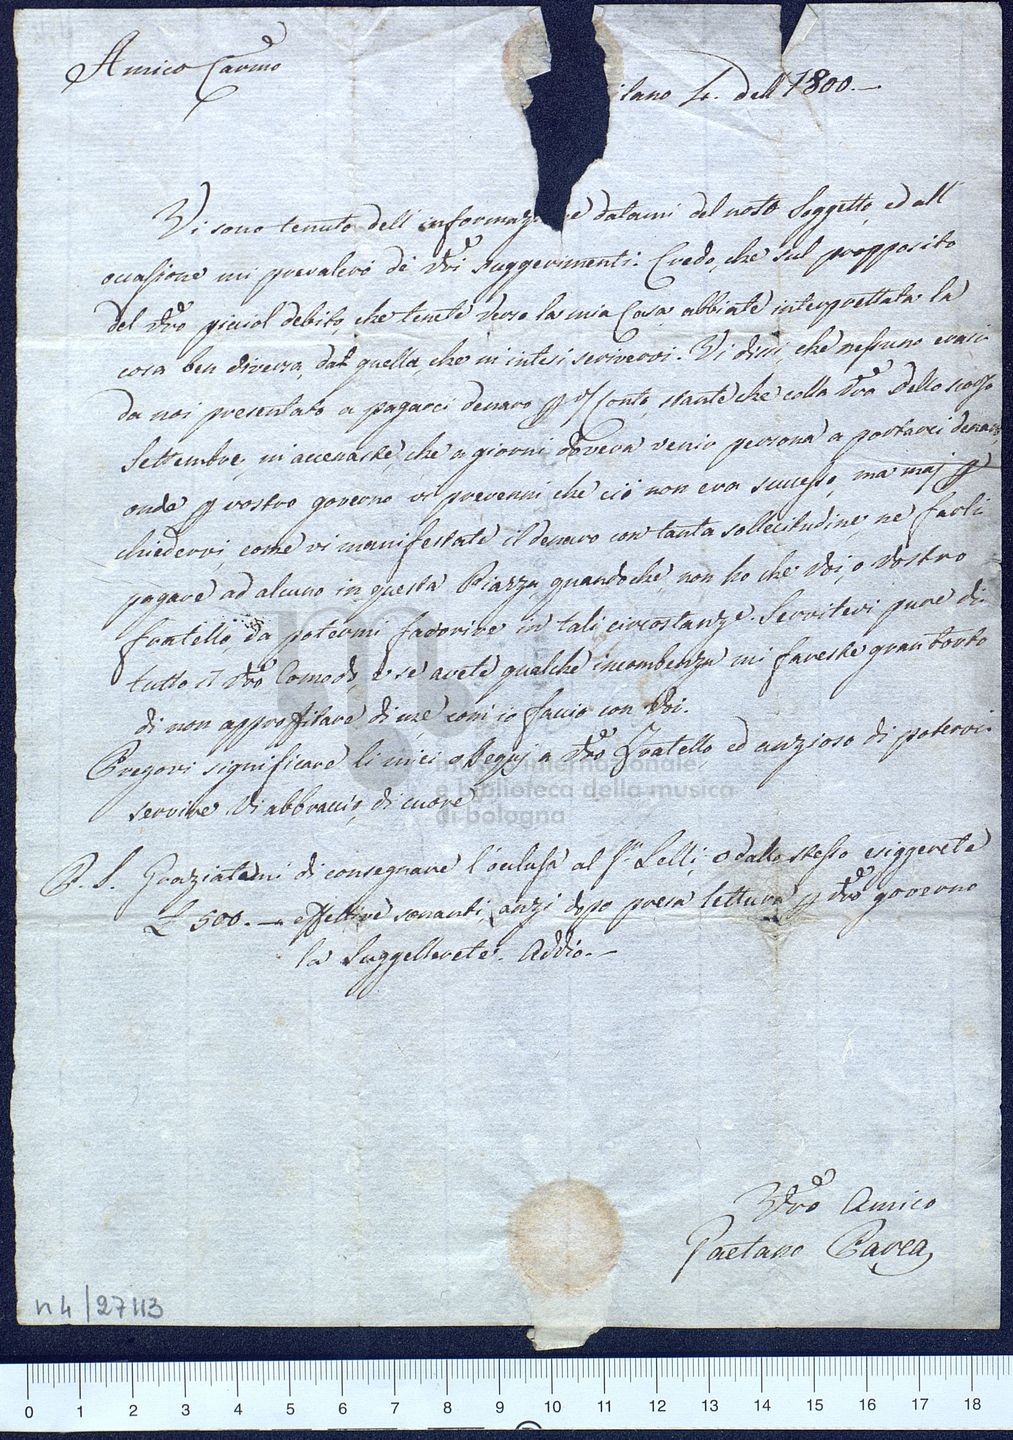 Amico Carmo
ilano 4. dell 1800.—
Vi sono tenuto dell informaz e datami del nosto Soggetto, ed all
occasione mi prevalerò de Vri suggerimenti. Credo, che sul propposito
del Vro picciol debito, che tenete verso la mia Casa, abbiate interprettata la
cosa ben diversa, da quella, che m'intesi scrivervi. Vi dissi, che nessuno erasi
da noi presentato a pagarci denaro p Conto, stante che colla Vra dello scorso
Settembre, m accenaste, che a giorni doveva venir persona a portarci denaro,
onde p vostro governo vi prevenni che ciò non era successo, ma maj p
chiedervi, come vi manifestate il denaro con tanta sollecitudine, ne farli
pagare ad alcuno in questa Piazza, quandoche, non ho che Voi, o Vostro
fratello, da potermi favorire in tali circostanze. Servitevi pure di
tutto il Vro Comodo e se avete qualche incombenza mi fareste gran torto
di non approffitare di me, com io faccio con Voi.
Pregovi significare li miei ossequj a Vro Fratello ed anzioso di potervi
servire Vi abbraccio di cuore
P. S. Graziatemi di consegnare l'oclusa al Sr Lelli, e dallo stesso esiggerete
£ 500. — effettive sonanti, anzi dopo presa lettura p Vro governo
la Suggellerete. Addio. —
Vro Amico
Gaetano Pavea
n 4 / 27113
museo internazionale
e biblioteca della musica
di bologna
0 1 2 3 4 5 6 7 8 9 10 11 12 13 14 15 16 17 18